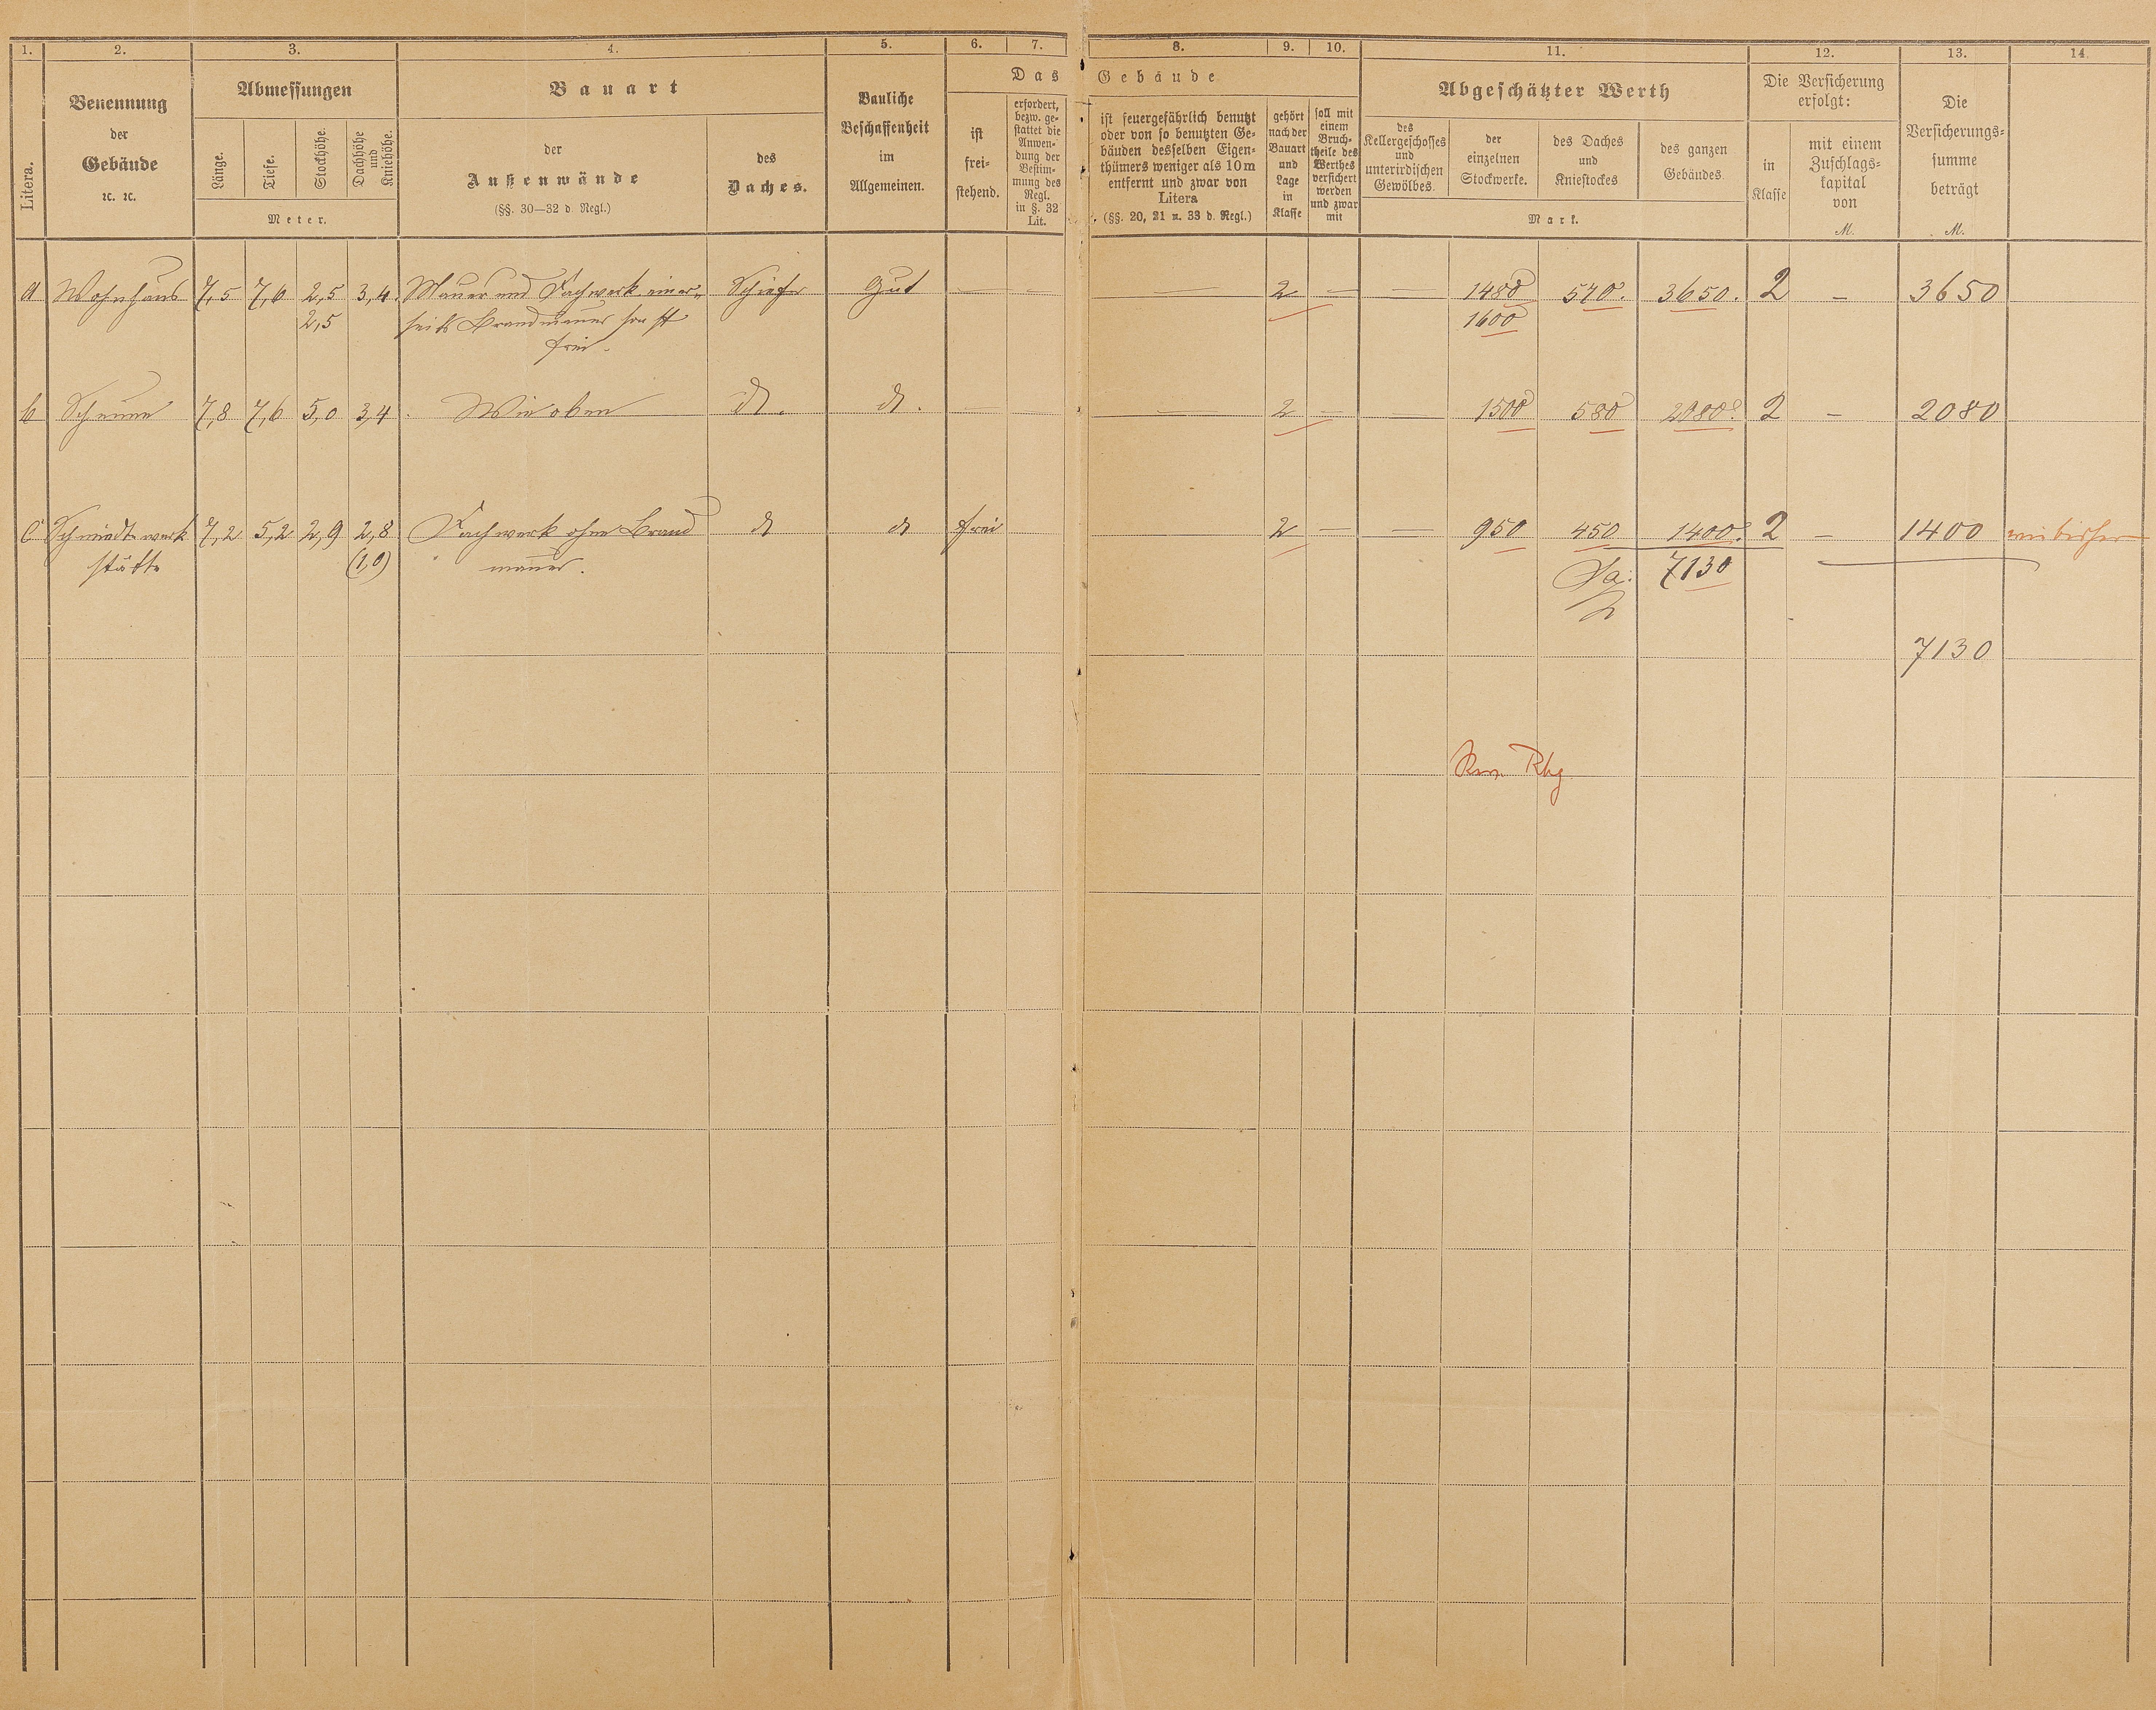 1. 2. 3. 4. 5. 6. 7. 8. 9. 10. 11. 12. 13. 14.
Litera.
Benennung
der
Gebäude
ꝛc. ꝛc.
Abmessungen
Länge.
Tiefe.
Stockhöhe.
Dachhöhe
und
Kniehöhe.
Meter.
Bauart
der
Außenwände
(§§. 30—32 d. Regl.)
des
Daches.
Bauliche
Beschaffenheit
im
Allgemeinen.
Das Gebäude
ist
frei-
stehend.
erfordert,
bezw. ge-
stattet die
Anwen-
dung der
Bestim-
mung des
Regl.
in §. 32
Lit.
ist feuergefährlich benutzt
oder von so benutzten Ge-
bäuden desselben Eigen-
thümers weniger als 10 m
entfernt und zwar von
Litera
(§§. 20, 21 u. 33 d. Regl.)
gehört
nach der
Bauart
und
Lage
in
Klasse
soll mit
einem
Bruch-
theile des
Werthes
versichert
werden
und zwar
mit
Abgeschätzter Werth
des
Kellergeschosses
und
unterirdischen
Gewölbes.
der
einzelnen
Stockwerke.
des Daches
und
Kniestockes
des ganzen
Gebäudes.
Mark.
Die Versicherung
erfolgt:
in
Klasse
mit einem
Zuschlags-
kapital
von
M.
Die
Versicherungs-
summe
beträgt
M.
a Wohnhaus 7,5 7,6 2,5 3,4. Mauer und Fachwerk einer- Schiefer Gut — — — 2 — — 1480 570. 3650. 2 — 3650
2,5 seits Brandmauer sonst 1600
frei.
b Scheune 7,8 7,6 5,0 3,4 Wie oben do. do. — 2 — — 1500 580 2080. 2 — 2080
c Schmiedewerk 7,2 5,2 2,9 2,8 Fachwerk ohne Brand do do frei 2 — — 950 450 1400. 2 — 1400 wie bisher
stätte (1,0) mauer. Sa: 7130
7130